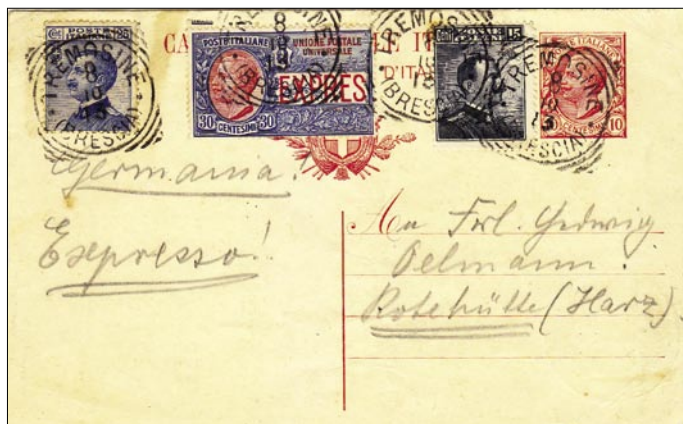 POSTE ITALIANE
UNIONE POSTALE
UNIVERSALE
EXPRES
30 CENTESIMI 30
15
10
TREMOSINE
(BRESCIA)
TREMOSINE
(BRESCIA)
D'ITA
Germania!
Espresso!
An Frl. Hedwig
Oelmann.
Rotehütte (Harz).